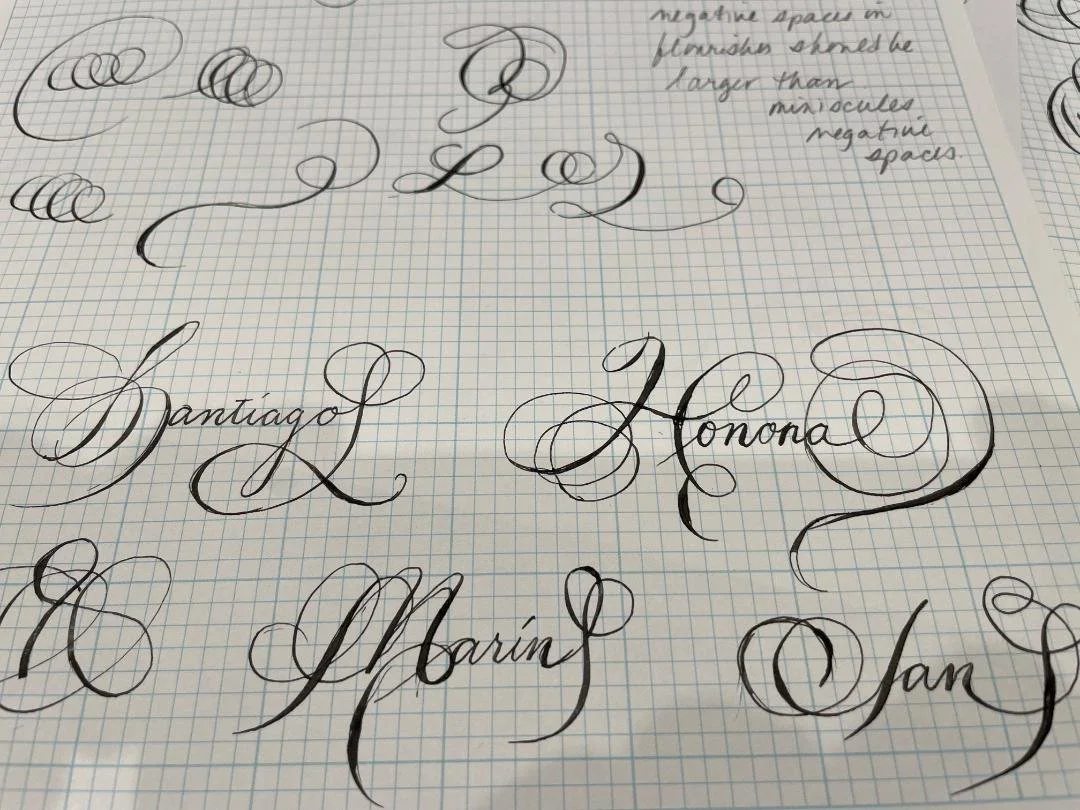 negative spaces in
flourishes should be
larger than
miniscules
negative
spaces.
Santiago
Honona
Marín